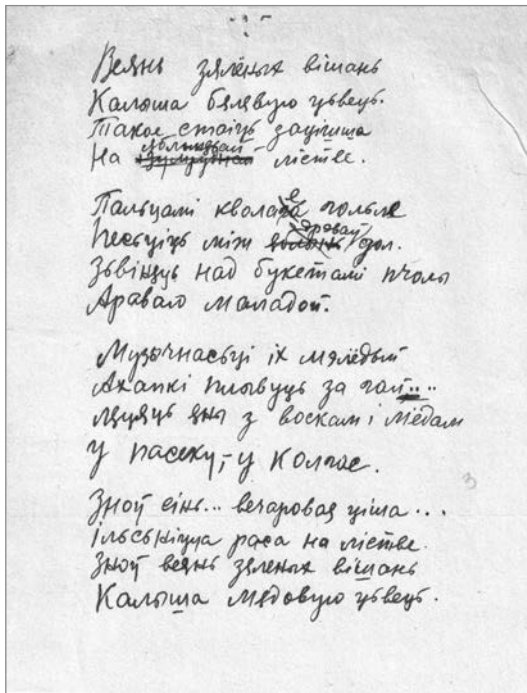 ...
Веянь зялёных вішань
Калыша бялявую цьвець.
Такое стаіць заціша
На яблыкавай лістве.
Пальцамі кволае гольле
Песьціць між дол.
над букетамі пчолы
маладой.
Музычнасьці іх мялёдый
Ахапкі плывуць за гай....
Ляцяць яны з воскам і мёдам
У пасеку, – у Колгас.
Зноў сінь... вечаровая ціша...
Ільсьніцца раса на лістве.
Зноў веянь зяленых вішань
Калыша мядовую цьвець.
3